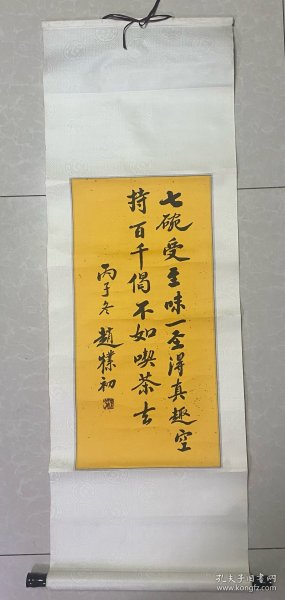 七碗受至味一壶得真趣空
持百千偈不如喫茶去
丙子冬 趙樸初
孔夫子旧书网
www.kongfz.com